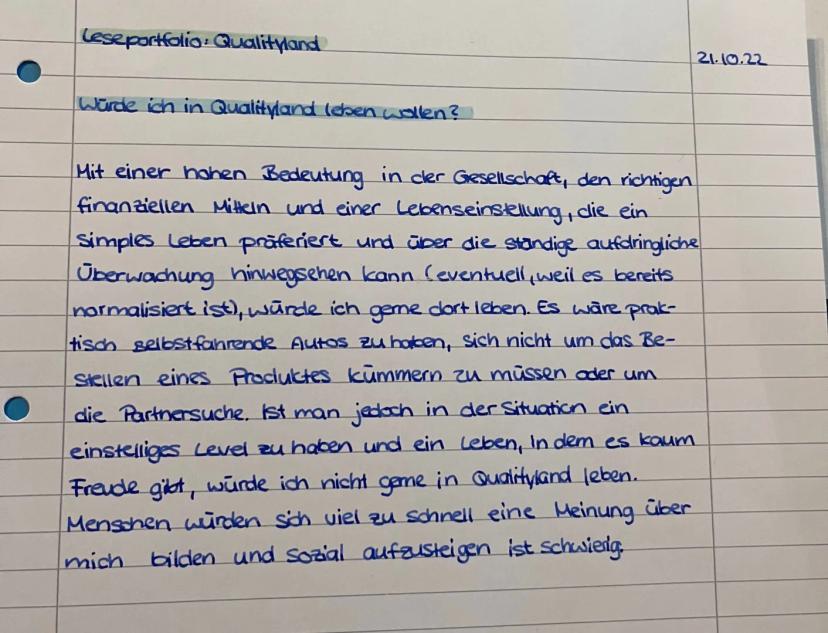 Leseportfolio: Qualityland
21.10.22
Würde ich in Qualityland leben wollen?
Mit einer hohen Bedeutung in der Gesellschaft, den richtigen
finanziellen Mitteln und einer Lebenseinstellung, die ein
simples Leben präferiert und über die ständige aufdringliche
Überwachung hinwegsehen kann (eventuell, weil es bereits
normalisiert ist), würde ich gerne dort leben. Es wäre prak-
tisch selbstfahrende Autos zu haben, sich nicht um das Be-
stellen eines Produktes kümmern zu müssen oder um
die Partnersuche. Ist man jedoch in der Situation ein
einstelliges Level zu haben und ein Leben, in dem es kaum
Freude gibt, würde ich nicht gerne in Qualityland leben.
Menschen würden sich viel zu schnell eine Meinung über
mich bilden und sozial aufzusteigen ist schwierig.